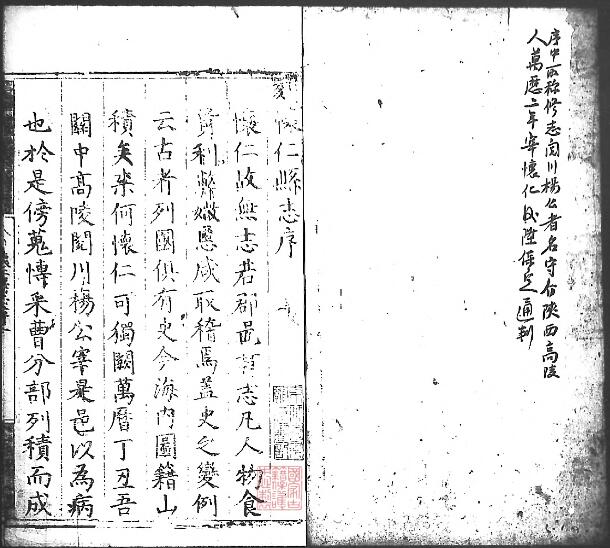 序中所称修志関川楊公者名守介陝西高陵
人萬歴二年宰懐仁後陞保定通判
懷仁縣志序
懷仁故無志若郡邑有志凡人物食
貨利弊媺慝咸取稽焉蓋史之變例
云古者列國俱有史今海内圖籍山
積矣柰何懷仁可獨闕萬曆丁丑吾
關中高陵関川楊公宰是邑以為病
也於是傍蒐博采曹分部列積而成